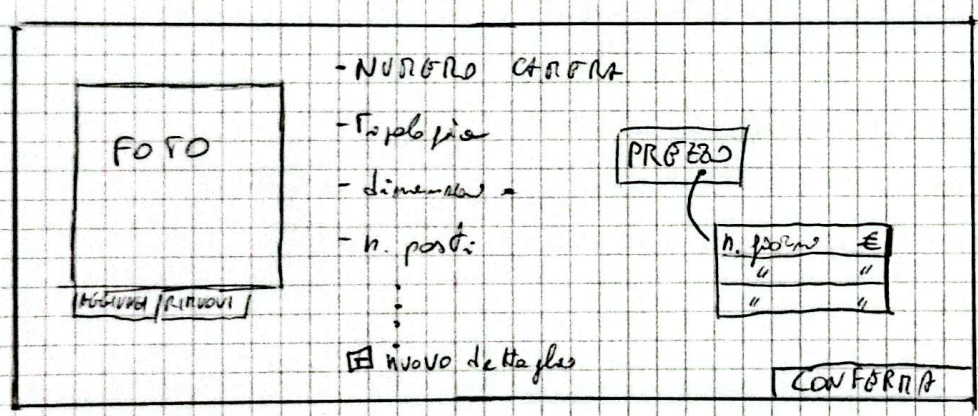 FOTO
AGGIUNGI RIMUOVI
- NUMERO CAMERA
- Tipologia
- dimensione
- n. posti
+ nuovo dettaglio
PREZZO
n. giorno €
" "
" "
CONFERMA